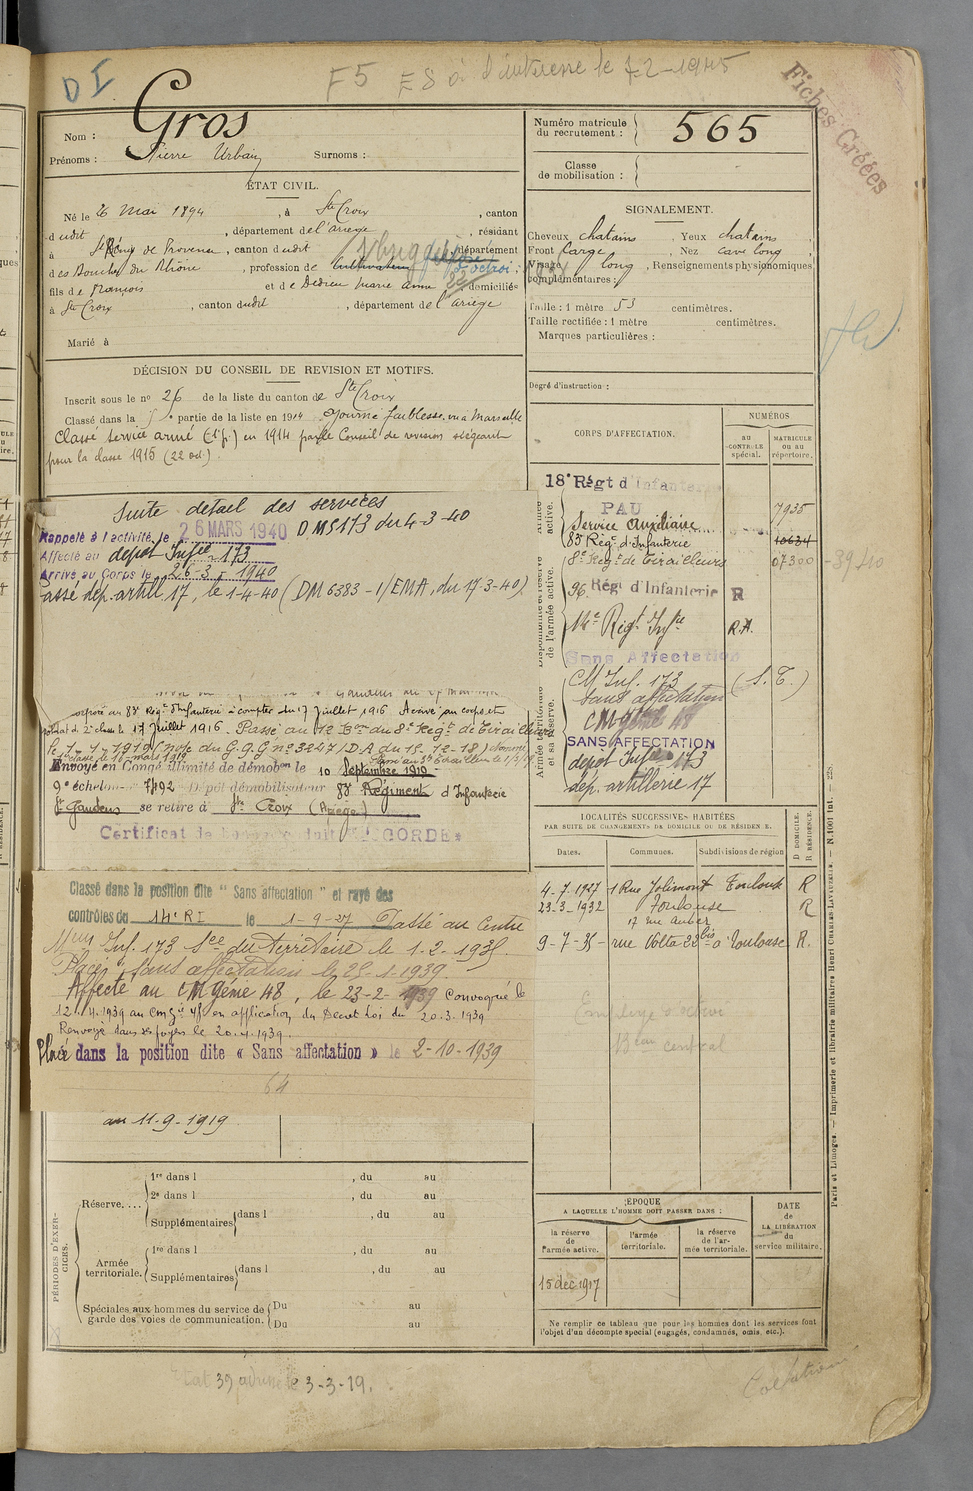 D I
F5 ES à le 7-2-1945
Fiches Créées
Nom : Gros
Prénoms : Pierre Urbain Surnoms :
Numéro matricule du recrutement : 565
Classe de mobilisation :
ÉTAT CIVIL.
Né le 26 Mai 1894 , à Ste Croix , canton
dudit , département de l'ariège , résidant
à St Rémy de Provence , canton dudit , département
des Bouches du Rhône , profession de Cultivateur
fils de François et de Dedieu Marie Anne , domiciliés
à Ste Croix , canton dudit , département de l'ariège
Marié à
SIGNALEMENT.
Cheveux chatains , Yeux chatains
Front large , Nez cave long
Visage long , Renseignements physionomiques
complémentaires :
Taille : 1 mètre 53 centimètres.
Taille rectifiée : 1 mètre centimètres.
Marques particulières :
Degré d'instruction :
DÉCISION DU CONSEIL DE REVISION ET MOTIFS.
Inscrit sous le no 26 de la liste du canton de Ste Croix
Classé dans la 5e partie de la liste en 1914 Ajourné faiblesse, vu à Marseille
Classé service armé (1e p.) en 1914 par le Conseil de révision siégeant
pour la classe 1915 (22 oct.)
CORPS D'AFFECTATION.
NUMÉROS
AU CONTROLE spécial.
MATRICULE ou au répertoire.
Suite détail des services
Rappelé à l'activité le 26 MARS 1940 DM 5173 du 4-3-40
Affecté au depot Infie 173
Arrivé au Corps le 26-3-1940
Passé dép. artill 17, le 1-4-40 (DM 6383-1/EMA, du 17-3-40).
18e Régt d'Infanterie
PAU
7935
Service Auxiliaire
83 Régt d'Infanterie 10634
8e Régt de Tirailleurs 07300 39410
96 Régt d'Infanterie R
14e Régt Infie R.A.
Sans Affectation
CM Inf. 173 (S. T.)
Sans affectation
CM génie 48
SANS AFFECTATION
depot Infie 173
dép. artillerie 17
Armée active.
Disponibilité et réserve de l'armée active.
Armée territoriale et sa réserve.
incorporé au 83e Régt d'Infanterie à compter du 17 Juillet 1916 Arrivé au corps et
soldat de 2e classe le 17 Juillet 1916. Passé au 12e Bon du 8e Régt de Tirailleurs
le 1-1-1919 (Note du G.Q.G no 3227/DA du 15-12-18)
Envoyé en Congé illimité de démobon le 10 Septembre 1919
9e échelon no 7492 Dépôt démobilisateur 83e Régiment d'Infanterie
St Gaudens se retire à Ste Croix (Ariège)
Certificat de bonne conduite "ACCORDÉ"
Classé dans la position dite "Sans affectation" et rayé des
contrôles du 14e RI le 1-9-27 Passé au Centre
Mon Inf. 173 Sce du Territoire le 1-2-1935.
Placé "sans affectation le 25-1-1939.
Affecté au CM génie 48, le 23-2-1939 Convoqué le
12.4.1939 au CM gie 48 en application du Décret Loi du 20.3.1939
Renvoyé dans ses foyers le 20.4.1939.
Placé dans la position dite « Sans affectation » le 2-10-1939
64
au 11-9-1919
LOCALITÉS SUCCESSIVES HABITÉES
PAR SUITE DE CHANGEMENTS DE DOMICILE OU DE RÉSIDENCE.
Dates. Communes. Subdivisions de région
D. DOMICILE. R. RÉSIDENCE.
4-7-1927 1 Rue Jolimont Toulouse R
23-3-1932 Toulouse R
17 rue Auber
9-7-35 - rue Volta 22 bis à Toulouse R.
Employé d'octroi
Beau central
PÉRIODES D'EXERCICES.
Réserve.... 1re dans l , du au
2e dans l , du au
Supplémentaires dans l , du au
Armée territoriale. 1re dans l , du au
Supplémentaires dans l , du au
Spéciales aux hommes du service de garde des voies de communication. Du au
Du au
ÉPOQUE
A LAQUELLE L'HOMME DOIT PASSER DANS :
la réserve de l'armée active.
l'armée territoriale.
la réserve de l'armée territoriale.
DATE de LA LIBÉRATION du service militaire.
15 dec 1917
Ne remplir ce tableau que pour les hommes dont les services font
l'objet d'un décompte spécial (engagés, condamnés, omis, etc.).
Paris et Limoges. — Imprimerie et librairie militaires Henri CHARLES-LAVAUZELLE. — N. 1001 Int. — 228.
39 adressé le 3-3-19.